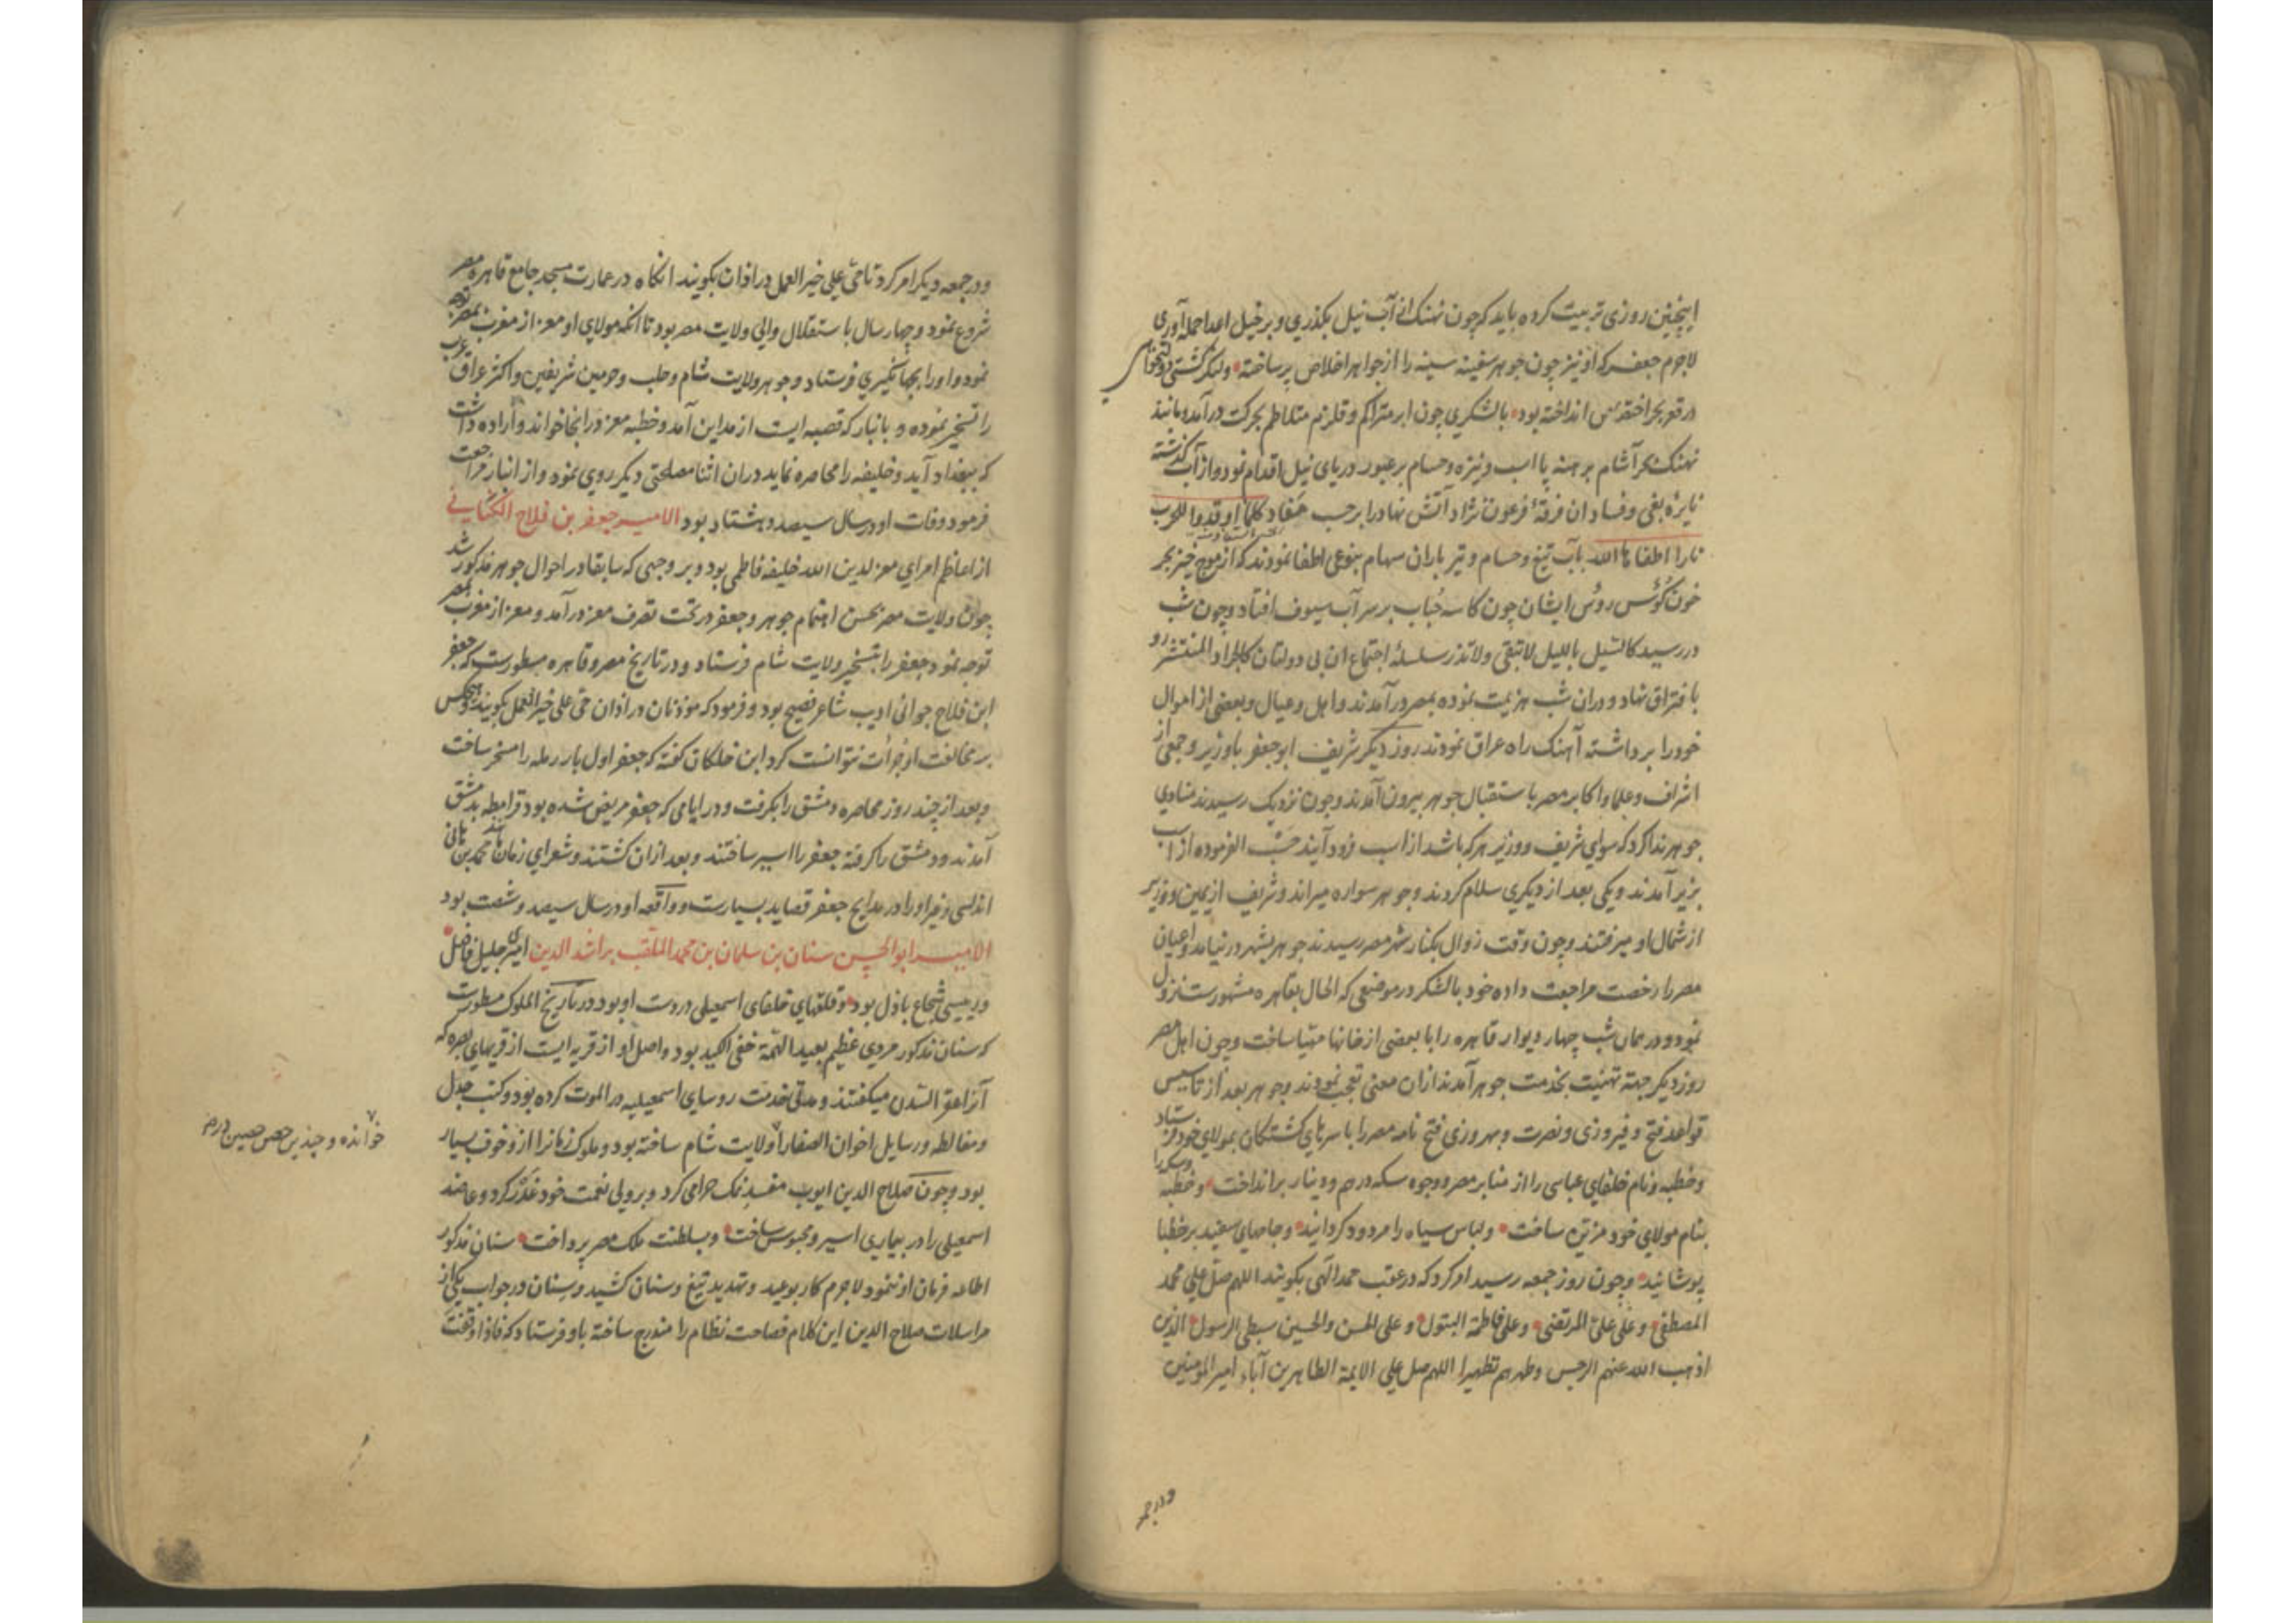 اینچنین روزی تربیت کرده باید که چون نهنک ازین آب نیل بکذری و بر خیل اعدا حمله آوری
لاجرم جعفر که او نیز چون جوهر سفینه سینه را از جواهر اخلاص پر ساخته و لنکر کشتی
در قعر بحر اختصاص انداخته بود با لشکری چون ابر متراکم و قلزم متلاطم بحرکت درآمد و مانند
نهنک بحر آشام برهنه با اسب و نیزه و حسام بر عبور دریای نیل اقدام نمود و از آب کذشته
نایرۀ بغی و فساد ان فرقۀ فرعون نژاد آتش نهاد را بر حسب مفاد کلما اوقدوا للحرب
نارا اطفاها الله بآب تیغ و حسام و تیر باران سهام بنوعی اطفا نمودند که از موج خیز بحر
خون کؤس رؤس ایشان چون کاسه حباب بر سر آب سیوف افتاد و چون شب
در رسید کالسیل باللیل لا تبقی و لا تذر سلسلۀ اجتماع ان بی دولتان کالجراد المنتشر رو
بافتراق نهاد و دران شب هزیمت نموده بمصر درآمدند و اهل و عیال و بعضی از اموال
خود را برداشته آهنک راه عراق نمودند روز دیکر شریف ابو جعفر با وزیر و جمعی از
اشراف و علما و اکابر مصر باستقبال جوهر بیرون آمدند و چون نزدیک رسیدند منادی
جوهر ندا کرد که سوای شریف و وزیر هر که باشد از اسب فرود آیند حسب الفرموده از اسب
بزیر آمدند و یکی بعد از دیکری سلام کردند و جوهر سواره میراند و شریف از یمین و وزیر
از شمال او میرفتند و چون وقت زوال بکنار شهر مصر رسیدند جوهر بشهر در نیامد و اعیان
مصر را رخصت مراجعت داده خود با لشکر در موضعی که الحال بقاهره مشهورست نزول
نمود و در همان شب چهار دیوار قاهره را با بعضی از خانها مهیا ساخت و چون اهل مصر
روز دیکر جهة تهنیت بخدمت جوهر آمدند ازان معنی تعجب نمودند و جوهر بعد از تاسیس
قواعد فتح و فیروزی و نصرت و بهروزی فتح نامه مصر را با سرهای کشتکان بمولای خود فرستاد
و خطبه و نام خلفای عباسی را از منابر مصر و وجوه سکه درهم و دینار برانداخت و خطبه و سکه را
بنام مولای خود مزین ساخت و لباس سیاه را مردود کردانید و جامهای سفید بر خطبا
پوشانید و چون روز جمعه رسید امر کرد که در عقب حمد الهی بکویند اللهم صل علی محمد
المصطفی و علی علی المرتضی و علی فاطمة البتول و علی الحسن و الحسین سبطی الرسول الذین
اذهب الله عنهم الرجس و طهرهم تطهیرا اللهم صل علی الایمة الطاهرین آباء امیر المومنین
و در جمعه
و در جمعه دیکر امر کرد تا حی علی خیر العمل در اذان بکویند انکاه در عمارت مسجد جامع قاهره مصر
شروع نمود و چهار سال باستقلال والی ولایت مصر بود تا آنکه مولای او معز از مغرب بمصر توجه
نمود و او را بجهانکیری فرستاد و جوهر ولایت شام و حلب و حرمین شریفین و اکثر عراق عرب
را تسخیر نموده و بانبار که قصبه ایست از مداین آمد و خطبه معز در انجا خواند و اراده داشت
که ببغداد آید و خلیفه را محاصره نماید دران اثنا مصلحتی دیکر روی نمود و از انبار مراجعت
فرمود وفات او در سال سیصد و هشتاد بود الامیر جعفر بن فلاح الکتانی
از اعاظم امرای معز لدین الله خلیفه فاطمی بود و بر وجهی که سابقا در احوال جوهر مذکور شد
چون ولایت مصر بحسن اهتمام جوهر و جعفر در تحت تصرف معز درآمد و معز از مغرب بمصر
توجه نمود جعفر را بتسخیر ولایت شام فرستاد و در تاریخ مصر و قاهره مسطورست که جعفر
ابن فلاح جوانی ادیب شاعر فصیح بود و فرمود که موذنان در اذان حی علی خیر العمل بکویند و هیچکس
بر مخالفت او جرأت نتوانست کرد ابن خلکان کفته که جعفر اول بار رمله را مسخر ساخت
و بعد از چند روز محاصره دمشق را بکرفت و در ایامی که جعفر مریض شده بود قرامطه بدمشق
آمدند و دمشق را کرفته جعفر را اسیر ساختند و بعد ازان کشتند و شعرای زمان مانند محمد بن هانی
اندلسی و غیر او را در مدایح جعفر قصاید بسیارست و واقعه او در سال سیصد و شصت بود
الامیر ابو الحسن سنان بن سلمان بن محمد الملقب براشد الدین امیری جلیل فاضل
و رییسی شجاع باذل بود و قلعهای خلفای اسمعیلی در دست او بود در تاریخ الملوک مسطورست
که سنان مذکور مردی عظیم بعید الهمة خفی الکید بود و اصل او از قریه ایست از قریهای بصره که
آنرا عقر السدن میکفتند و مدتی خدمت روسای اسمعیلیه در الموت کرده بود و کتب جدل
و مغالطه و رسایل اخوان الصفا را ولایت شام ساخته بود و ملوک زمانرا از و خوف بسیار
خوانده و چندین حصن حصین در
بود و چون صلاح الدین ایوب مفسد نمک حرامی کرد و بر ولی نعمت خود غدر کرد و عاضد
اسمعیلی را در بیماری اسیر و محبوس ساخت و بسلطنت ملک مصر پرداخت سنان مذکور
اطاعه فرمان او ننمود لاجرم کار بوعید و تهدید تیغ و سنان کشید و سنان در جواب یکی از
مراسلات صلاح الدین این کلام فصاحت نظام را مندرج ساخته باو فرستاد که